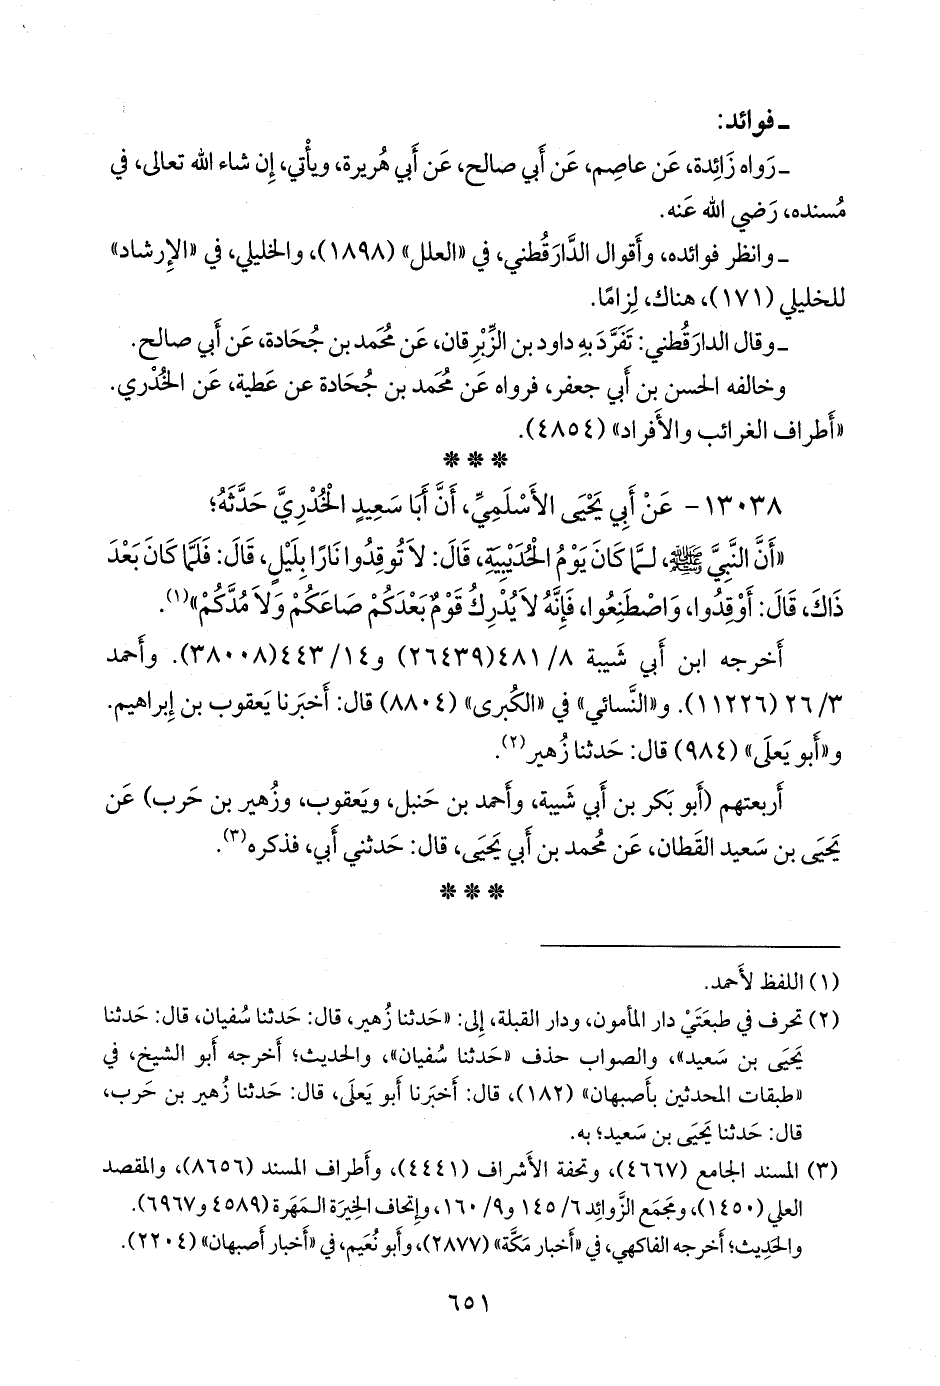 ـ فوائد:
ـ رَواه زَائِدة، عَن عاصِم، عَن أَبي صالح، عَن أَبي هُريرة، ويأْتي، إِن شاء الله تعالى، في
مُسنده، رَضي الله عَنه.
ـ وانظر فوائده، وأَقوال الدَّارَقُطني، في «العلل» (١٨٩٨)، والخليلي، في «الإِرشاد»
للخليلي (١٧١)، هناك، لِزامًا.
ـ وقال الدارَقُطني: تَفَرَّدَ بهِ داود بن الزِّبْرِقان، عَن مُحَمد بن جُحَادة، عَن أَبي صالح.
وخالفه الحسن بن أَبي جعفر، فرواه عَن مُحَمد بن جُحَادة عن عَطية، عَن الخُدْري.
«أَطراف الغرائب والأَفراد» (٤٨٥٤).
* * *
١٣٠٣٨ - عَنْ أَبِي يَحْيَى الأَسْلَمِيِّ، أَنَّ أَبَا سَعِيدٍ الْخُدْرِيَّ حَدَّثَهُ؛
«أَنَّ النَّبِيَّ ﷺ، لَمَّا كَانَ يَوْمُ الْحُدَيْبِيَةِ، قَالَ: لاَ تُوقِدُوا نَارًا بِلَيْلٍ، قَالَ: فَلَمَّا كَانَ بَعْدَ
ذَاكَ، قَالَ: أَوْقِدُوا، وَاصْطَنِعُوا، فَإِنَّهُ لاَ يُدْرِكُ قَوْمٌ بَعْدَكُمْ صَاعَكُمْ وَلاَ مُدَّكُمْ»(١).
أَخرجه ابن أَبي شَيبة ٨/ ٤٨١(٢٦٤٣٩) و١٤/ ٤٤٣(٣٨٠٠٨). وأَحمد
٣/ ٢٦(١١٢٢٦). و«النَّسائي» في «الكُبرى» (٨٨٠٤) قال: أَخبَرنا يَعقوب بن إِبراهيم.
و«أَبو يَعلَى» (٩٨٤) قال: حَدثنا زُهير(٢).
أَربعتهم (أَبو بَكر بن أَبي شَيبة، وأَحمد بن حَنبل، ويَعقوب، وزُهير بن حَرب) عَن
يَحيَى بن سَعيد القَطان، عَن مُحمد بن أَبي يَحيَى، قال: حَدثني أَبي، فذكره(٣).
* * *
(١) اللفظ لأَحمد.
(٢) تحرف في طبعَتَيْ دار المأمون، ودار القبلة، إِلى: «حَدثنا زُهير، قال: حَدثنا سُفيان، قال: حَدثنا
يَحيَى بن سَعيد»، والصواب حذف «حَدثنا سُفيان»، والحديث؛ أَخرجه أَبو الشيخ، في
«طبقات المحدثين بأَصبهان» (١٨٢)، قال: أَخبَرنا أَبو يَعلَى، قال: حَدثنا زُهير بن حَرب،
قال: حَدثنا يَحيَى بن سَعيد؛ به.
(٣) المسند الجامع (٤٦٦٧)، وتحفة الأَشراف (٤٤٤١)، وأَطراف المسند (٨٦٥٦)، والمقصد
العلي (١٤٥٠)، ومَجمَع الزَّوائِد ٦/ ١٤٥ و٩/ ١٦٠، وإِتحاف الخِيرَة الـمَهَرة (٤٥٨٩ و٦٩٦٧).
والحَدِيث؛ أَخرجه الفاكهي، في «أَخبار مَكَّة» (٢٨٧٧)، وأَبو نُعَيم، في «أَخبار أَصبهان» (٢٢٠٤).
٦٥١